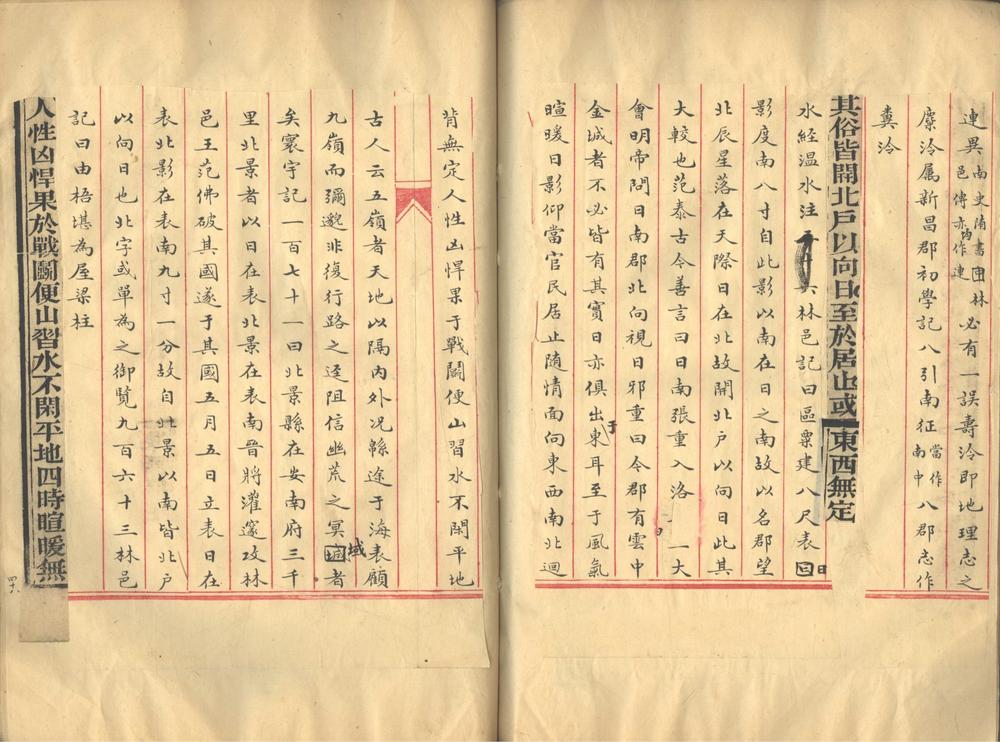 連異南史隋書林邑傳亦作連必有一誤壽泠即地理志之
麋泠屬新昌郡初學記八引南征當作南中八郡志作
糞泠
其俗皆開北戶以向日至於居止或東西無定
水經溫水注林邑記曰區粟建八尺表日
影度南八寸自此影以南在日之南故以名郡望
北辰星落在天際日在北故開北戶以向日此其
大較也范泰古今善言曰日南張重入洛一大
會明帝問日南郡北向視日邪重曰今郡有雲中
金城者不必皆有其實日亦俱出于東耳至于風氣
暄暖日影仰當官民居止隨情面向東西南北迴
背無定人性凶悍果于戰鬭便山習水不閑平地
古人云五嶺者天地以隔內外况緜途于海表顧
九嶺而彌邈非復行路之逕阻信幽荒之冥域者
矣寰宇記一百七十一曰北景縣在安南府三千
里北景者以日在表北景在表南晉將灌邃攻林
邑王范佛破其國遂于其國五月五日立表日在
表北影在表南九寸一分故自北景以南皆北戶
以向日也北字或單為之御覽九百六十三林邑
記曰由梧堪為屋梁柱
人性凶悍果於戰鬭便山習水不閑平地四時暄暖無
四六